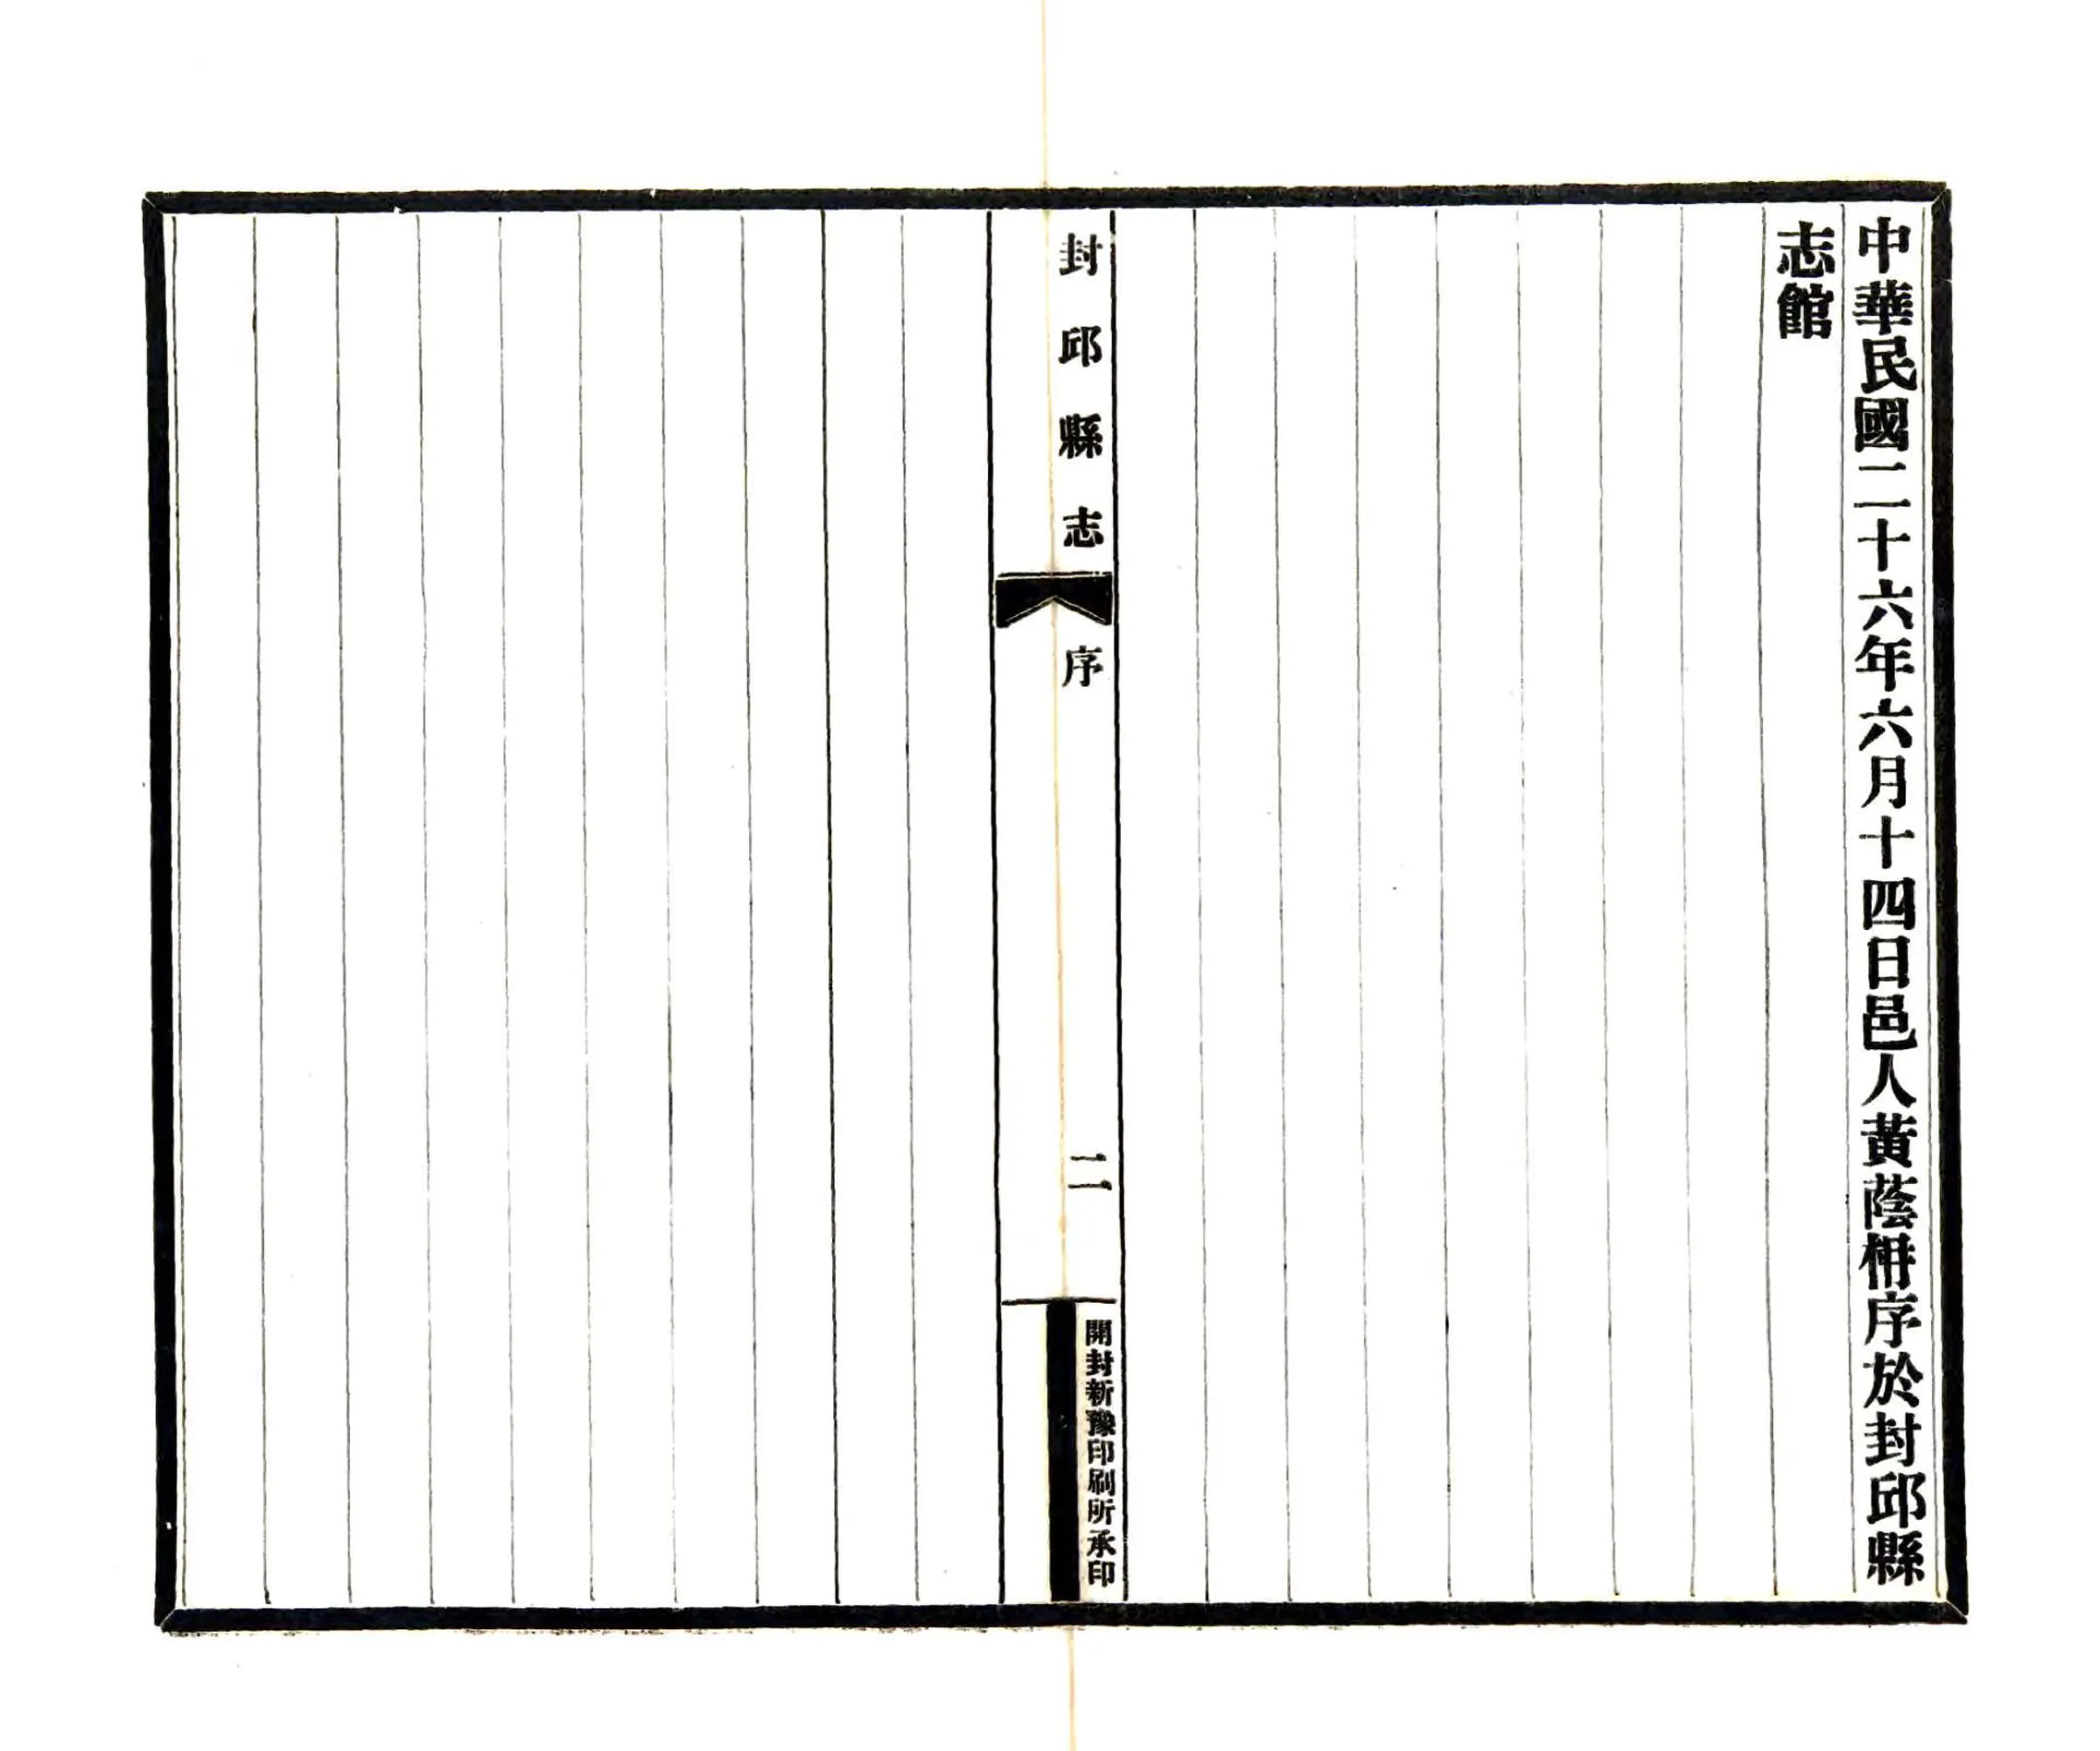 中華民國二十六年六月十四日邑人黃蔭柟序於封邱縣
志館
封邱縣志
序
二
開封新豫印刷所承印